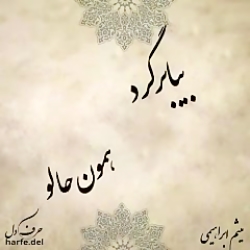 بیا برگرد
همون حالو
حرف دل
harfe.del
میثم ابراهیمی